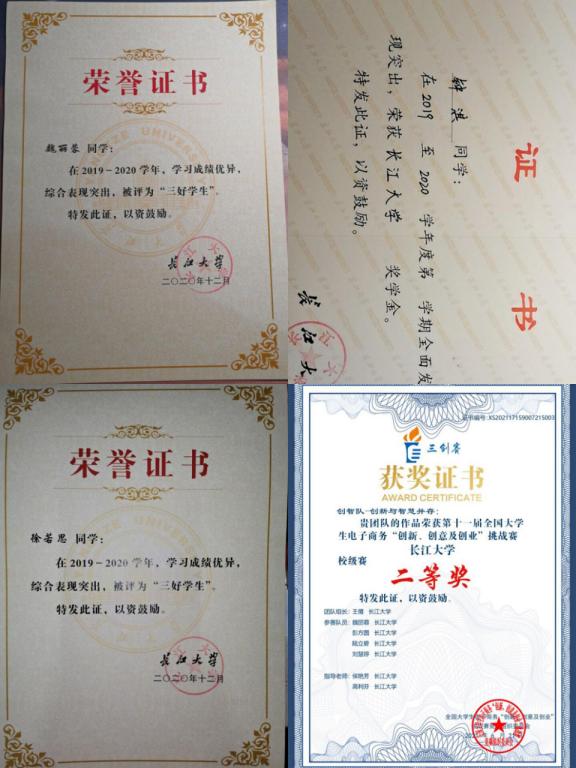 荣誉证书
魏丽蓉 同学：
在2019-2020学年，学习成绩优异，
综合表现突出，被评为“三好学生”。
特发此证，以资鼓励。
长江大学
二〇二〇年十二月
证书
钟洪 同学：
在2019至2020学年度第 学期全面发
现突出，荣获长江大学 奖学金。
特发此证，以资鼓励。
长江大
荣誉证书
徐若思 同学：
在2019-2020学年，学习成绩优异，
综合表现突出，被评为“三好学生”。
特发此证，以资鼓励。
长江大学
二〇二〇年十二月
证书编号:XS202117159007215003
三创赛
获奖证书
AWARD CERTIFICATE
创智队-创新与智慧并存：
贵团队的作品荣获第十一届全国大学
生电子商务“创新、创意及创业”挑战赛
长江大学
校级赛
二等奖
特发此证，以资鼓励。
团队组长：王倩 长江大学
参赛队员：魏丽蓉 长江大学
彭方圆 长江大学
陆立娇 长江大学
刘慧婷 长江大学
指导老师：侯艳芳 长江大学
高利芬 长江大学